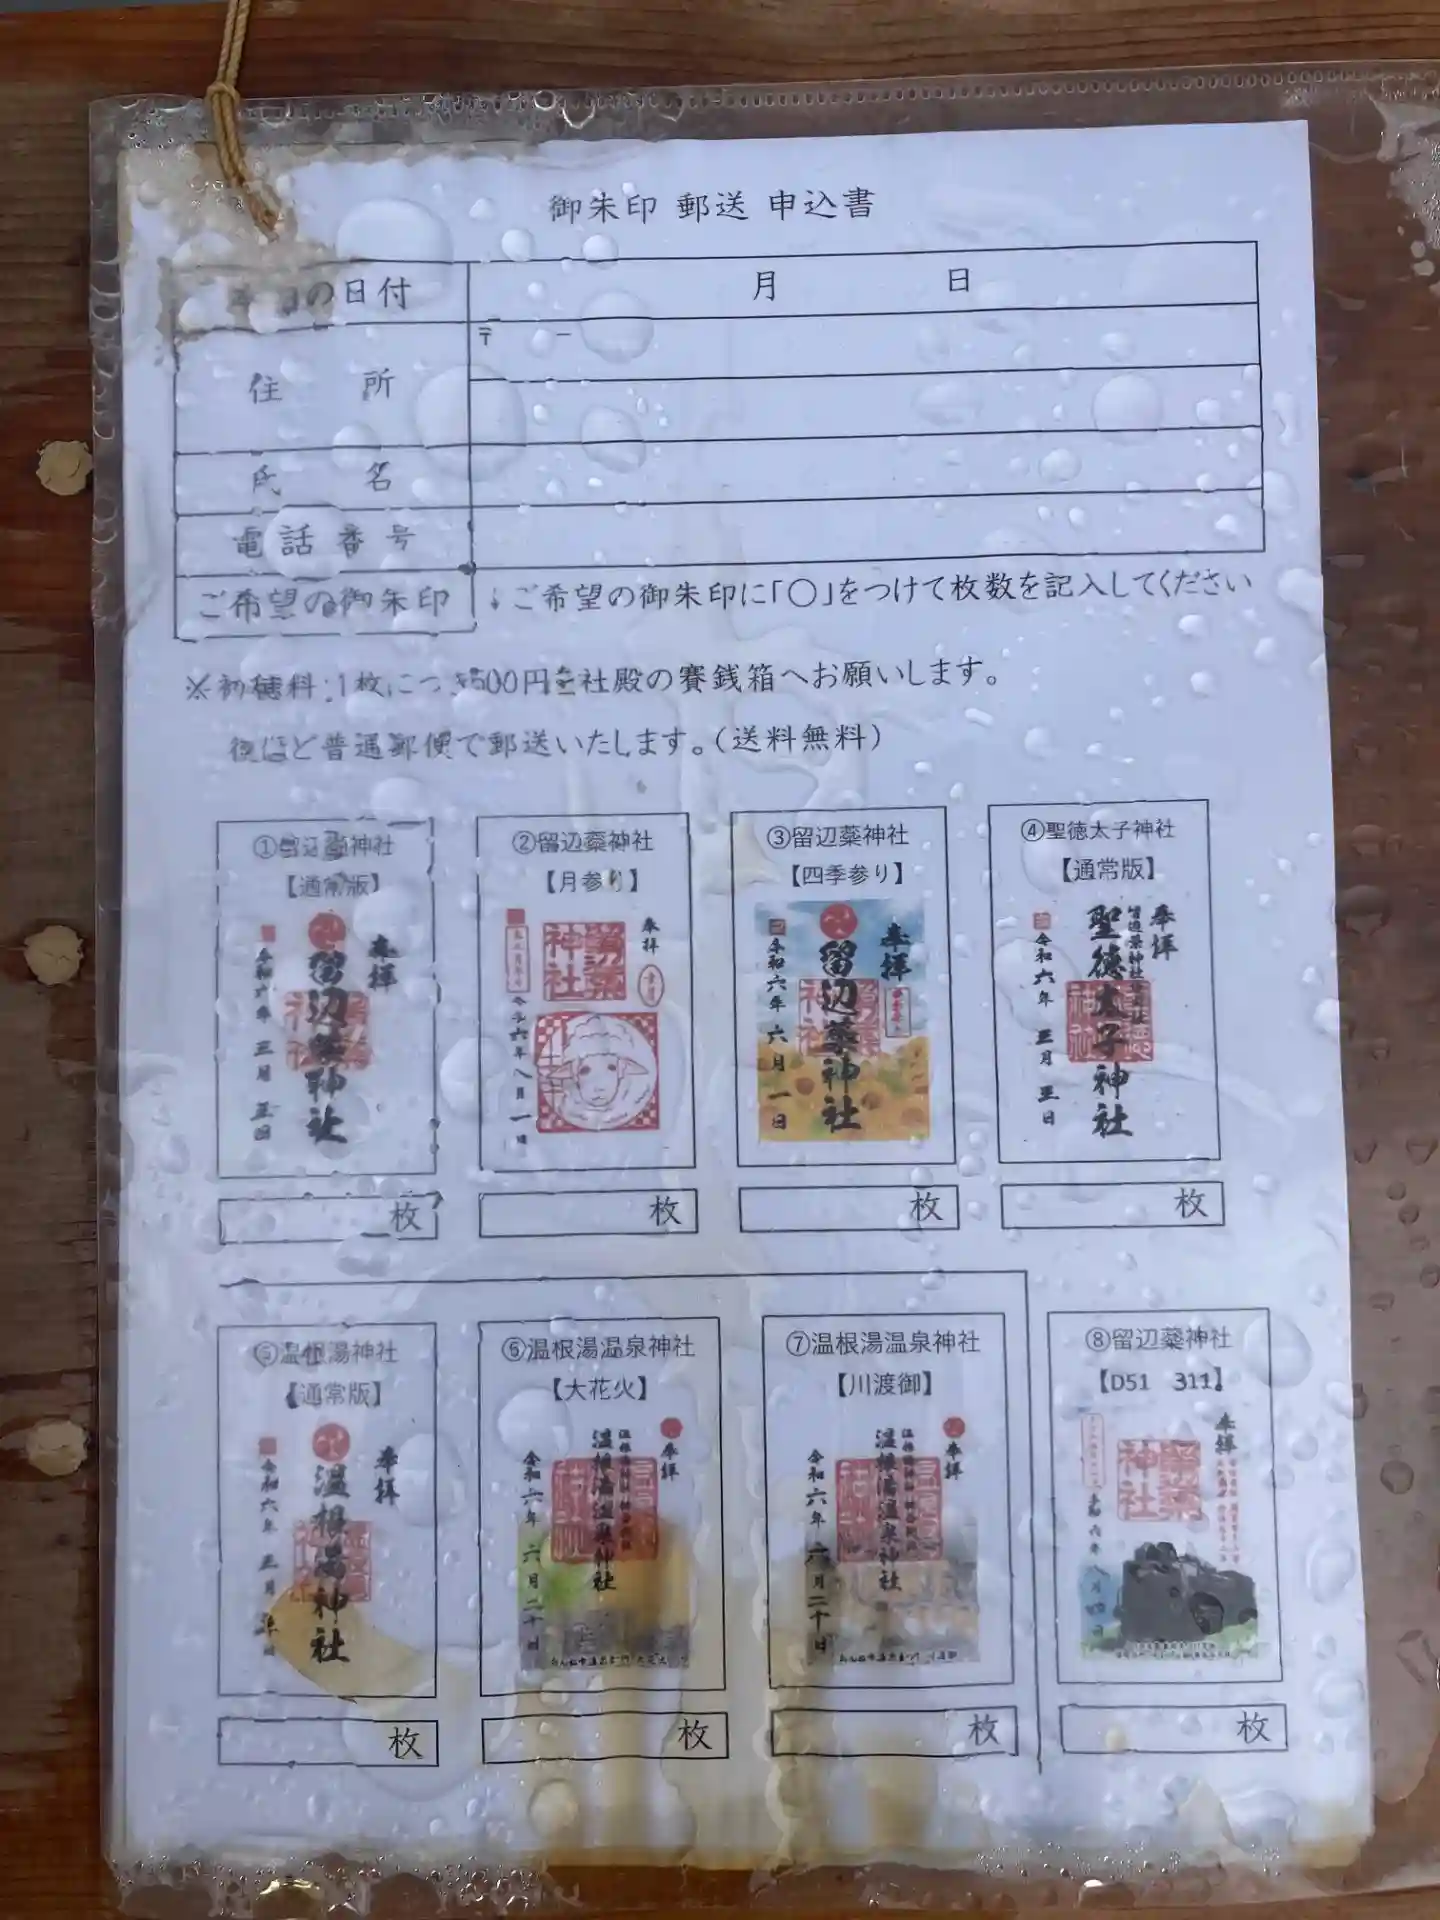 御朱印 郵送 申込書
の日付 月 日
〒 −
住 所
氏 名
電話番号
ご希望の御朱印 ↓ご希望の御朱印に「○」をつけて枚数を記入してください
※初穂料:1枚につき500円を社殿の賽銭箱へお願いします。
後ほど普通郵便で郵送いたします。(送料無料)
①留辺蘂神社
【通常版】
奉拝
留辺蘂神社
令和六年
②留辺蘂神社
【月参り】
奉拝
令和六年八月一日
③留辺蘂神社
【四季参り】
奉拝
留辺蘂神社
令和六年六月一日
④聖徳太子神社
【通常版】
奉拝
聖徳太子神社
令和六年
枚
枚
枚
枚
⑤温根湯神社
【通常版】
奉拝
温根湯神社
令和六年
⑥温根湯温泉神社
【大花火】
奉拝
温根湯温泉神社
令和六年六月二十日
⑦温根湯温泉神社
【川渡御】
奉拝
温根湯温泉神社
令和六年六月二十日
⑧留辺蘂神社
【D51 311】
奉拝
枚
枚
枚
枚